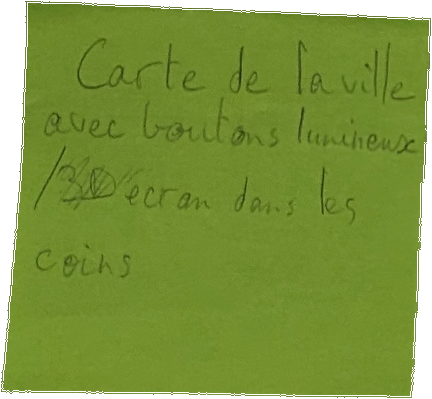 Carte de la ville
avec boutons lumineux
/ écran dans les
coins